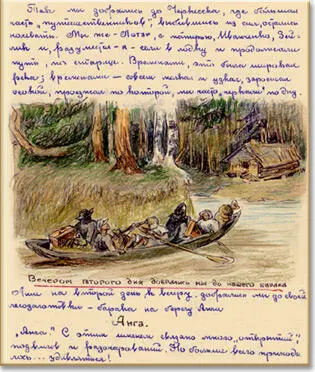 Так мы добрались до Черевска, где большая
часть „путешественников", выбившись из сил, остались
ночевать. Мы же - Лотар, с
и я, разумеется - сели в лодку и продолжали
путь, по старице. Временами, это была широкая
река, временами - совсем мелкая и узкая, заросшая
осокой, проезжая по которой, мы часто, чер по дну.
Вечером второго дня добрались мы до нашего барака
Лишь на второй день к вечеру, добрались мы до своей
лесозаготовки - барака на берегу Анги
Анга.
„Анга" С этим именем связано много „открытий",
подвигов и разочарований. Но больше всего приходи
лось... удивляться!